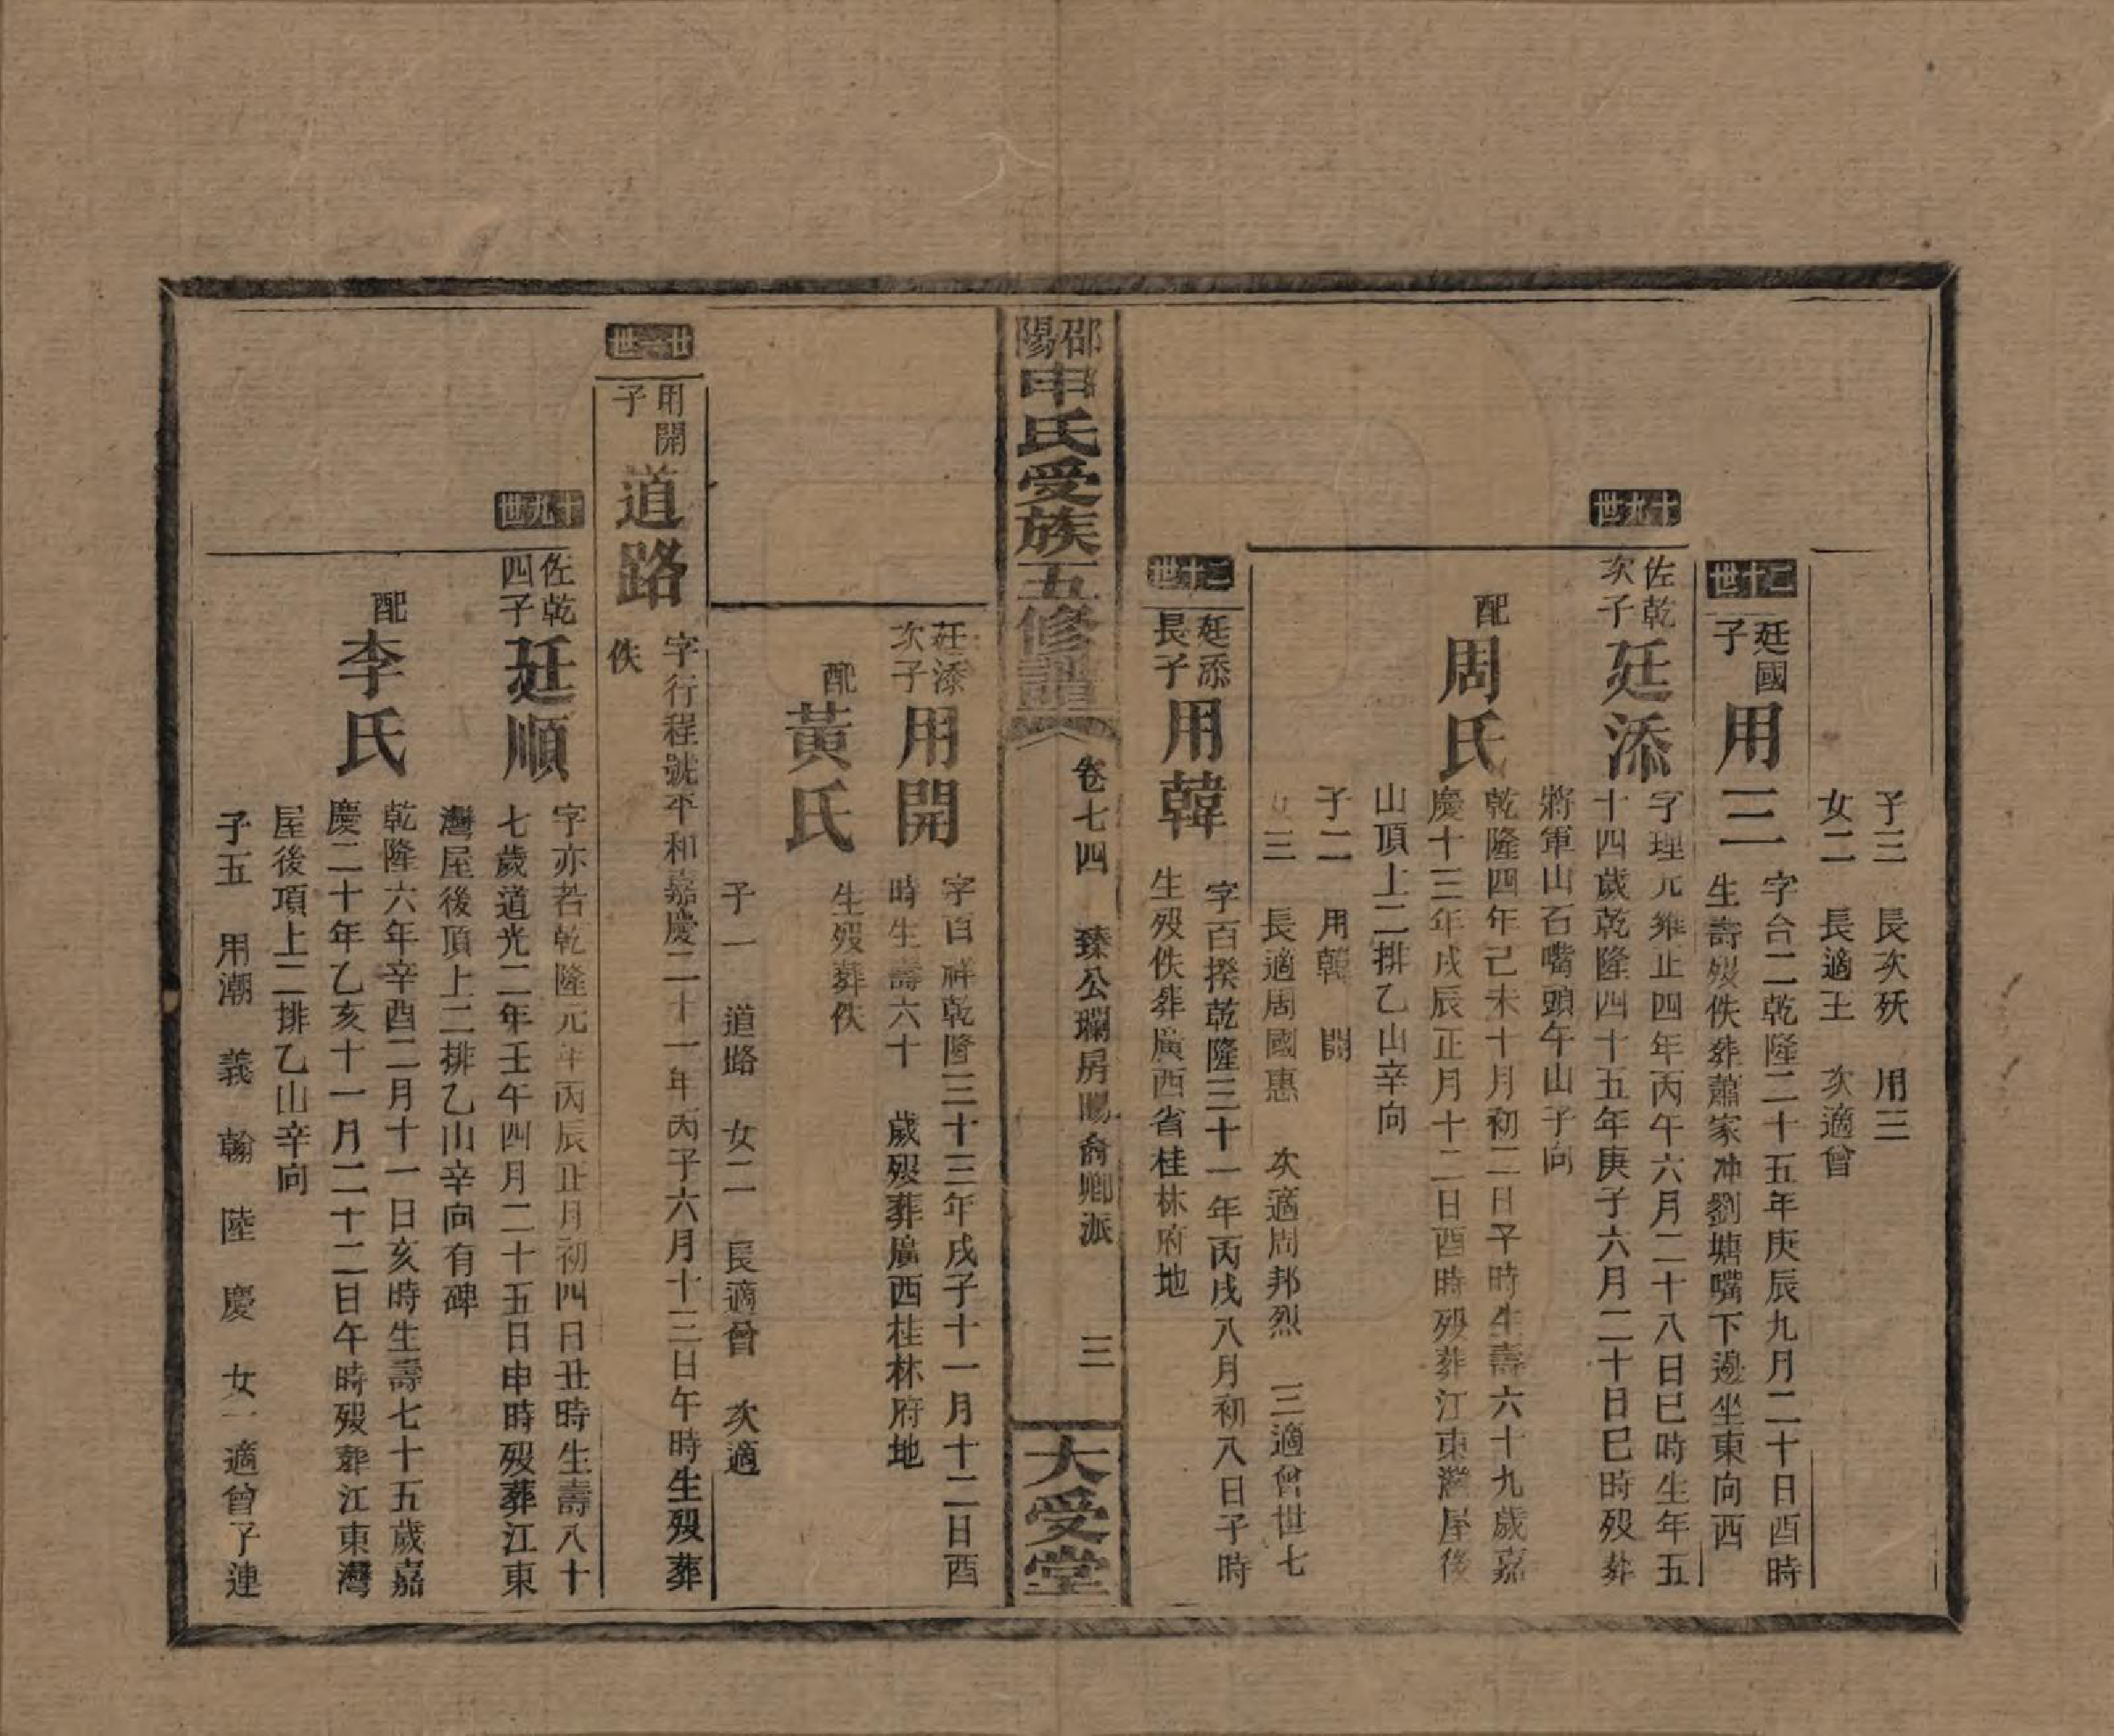 子三 長次殀 用三
女二 長適王 次適曾
二十世
廷國子
用三
字台二乾隆二十五年庚辰九月二十日酉時
生壽歿佚葬蕭家冲劉塘嘴下邊坐東向西
十九世
佐乾次子
廷添
字理元雍正四年丙午六月二十八日巳時生年五
十四歲乾隆四十五年庚子六月二十日巳時歿葬
將軍山石嘴頭午山子向
配
周氏
乾隆四年己未十月初二日子時生壽六十九歲嘉
慶十三年戊辰正月十二日酉時歿葬江東灣屋後
山頂上二排乙山辛向
子二 用韓 開
女三 長適周國惠 次適周邦烈 三適曾世七
二十世
廷添長子
用韓
字百揆乾隆三十一年丙戌八月初八日子時
生歿佚葬廣西省桂林府地
邵陽申氏受族五修譜
卷七四 臻公瓓房賜裔卿派 三
大受堂
廷添次子
用開
字百祥乾隆三十三年戊子十一月十二日酉
時生壽六十 歲歿葬廣西桂林府地
配
黃氏
生歿葬佚
子一 道路 女二 長適曾 次適
廿一世
用開子
道路
字行程號平和嘉慶二十一年丙子六月十三日午時生歿葬
佚
十九世
佐乾四子
廷順
字亦若乾隆元年丙辰正月初四日丑時生壽八十
七歲道光二年壬午四月二十五日申時歿葬江東
灣屋後頂上二排乙山辛向有碑
配
李氏
乾隆六年辛酉二月十一日亥時生壽七十五歲嘉
慶二十年乙亥十一月二十二日午時歿葬江東灣
屋後頂上二排乙山辛向
子五 用潮 義 翰 陸 慶 女一適曾子連